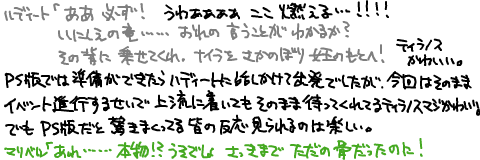 ハディート「ああ 必ず! うわぁぁぁぁ ここ 燃える…!!!!
いにしえの竜…… おれの 言うことが わかるか?
その背に 乗せてくれ。ナイラを さかのぼり 女王のもとへ!
ティラノス かわいい。
PS版では準備ができたらハディートに話しかけて出発でしたが、今回はそのまま
イベント進行するせいで 上流に着いてもそのまま待っててくれてるティラノスマジかわいい。
でも PS版だと 驚きまくってる 皆の反応 見られるのは楽しい。
マリベル「あれ…… 本物!? うそでしょ さっきまで ただの骨だったのに!